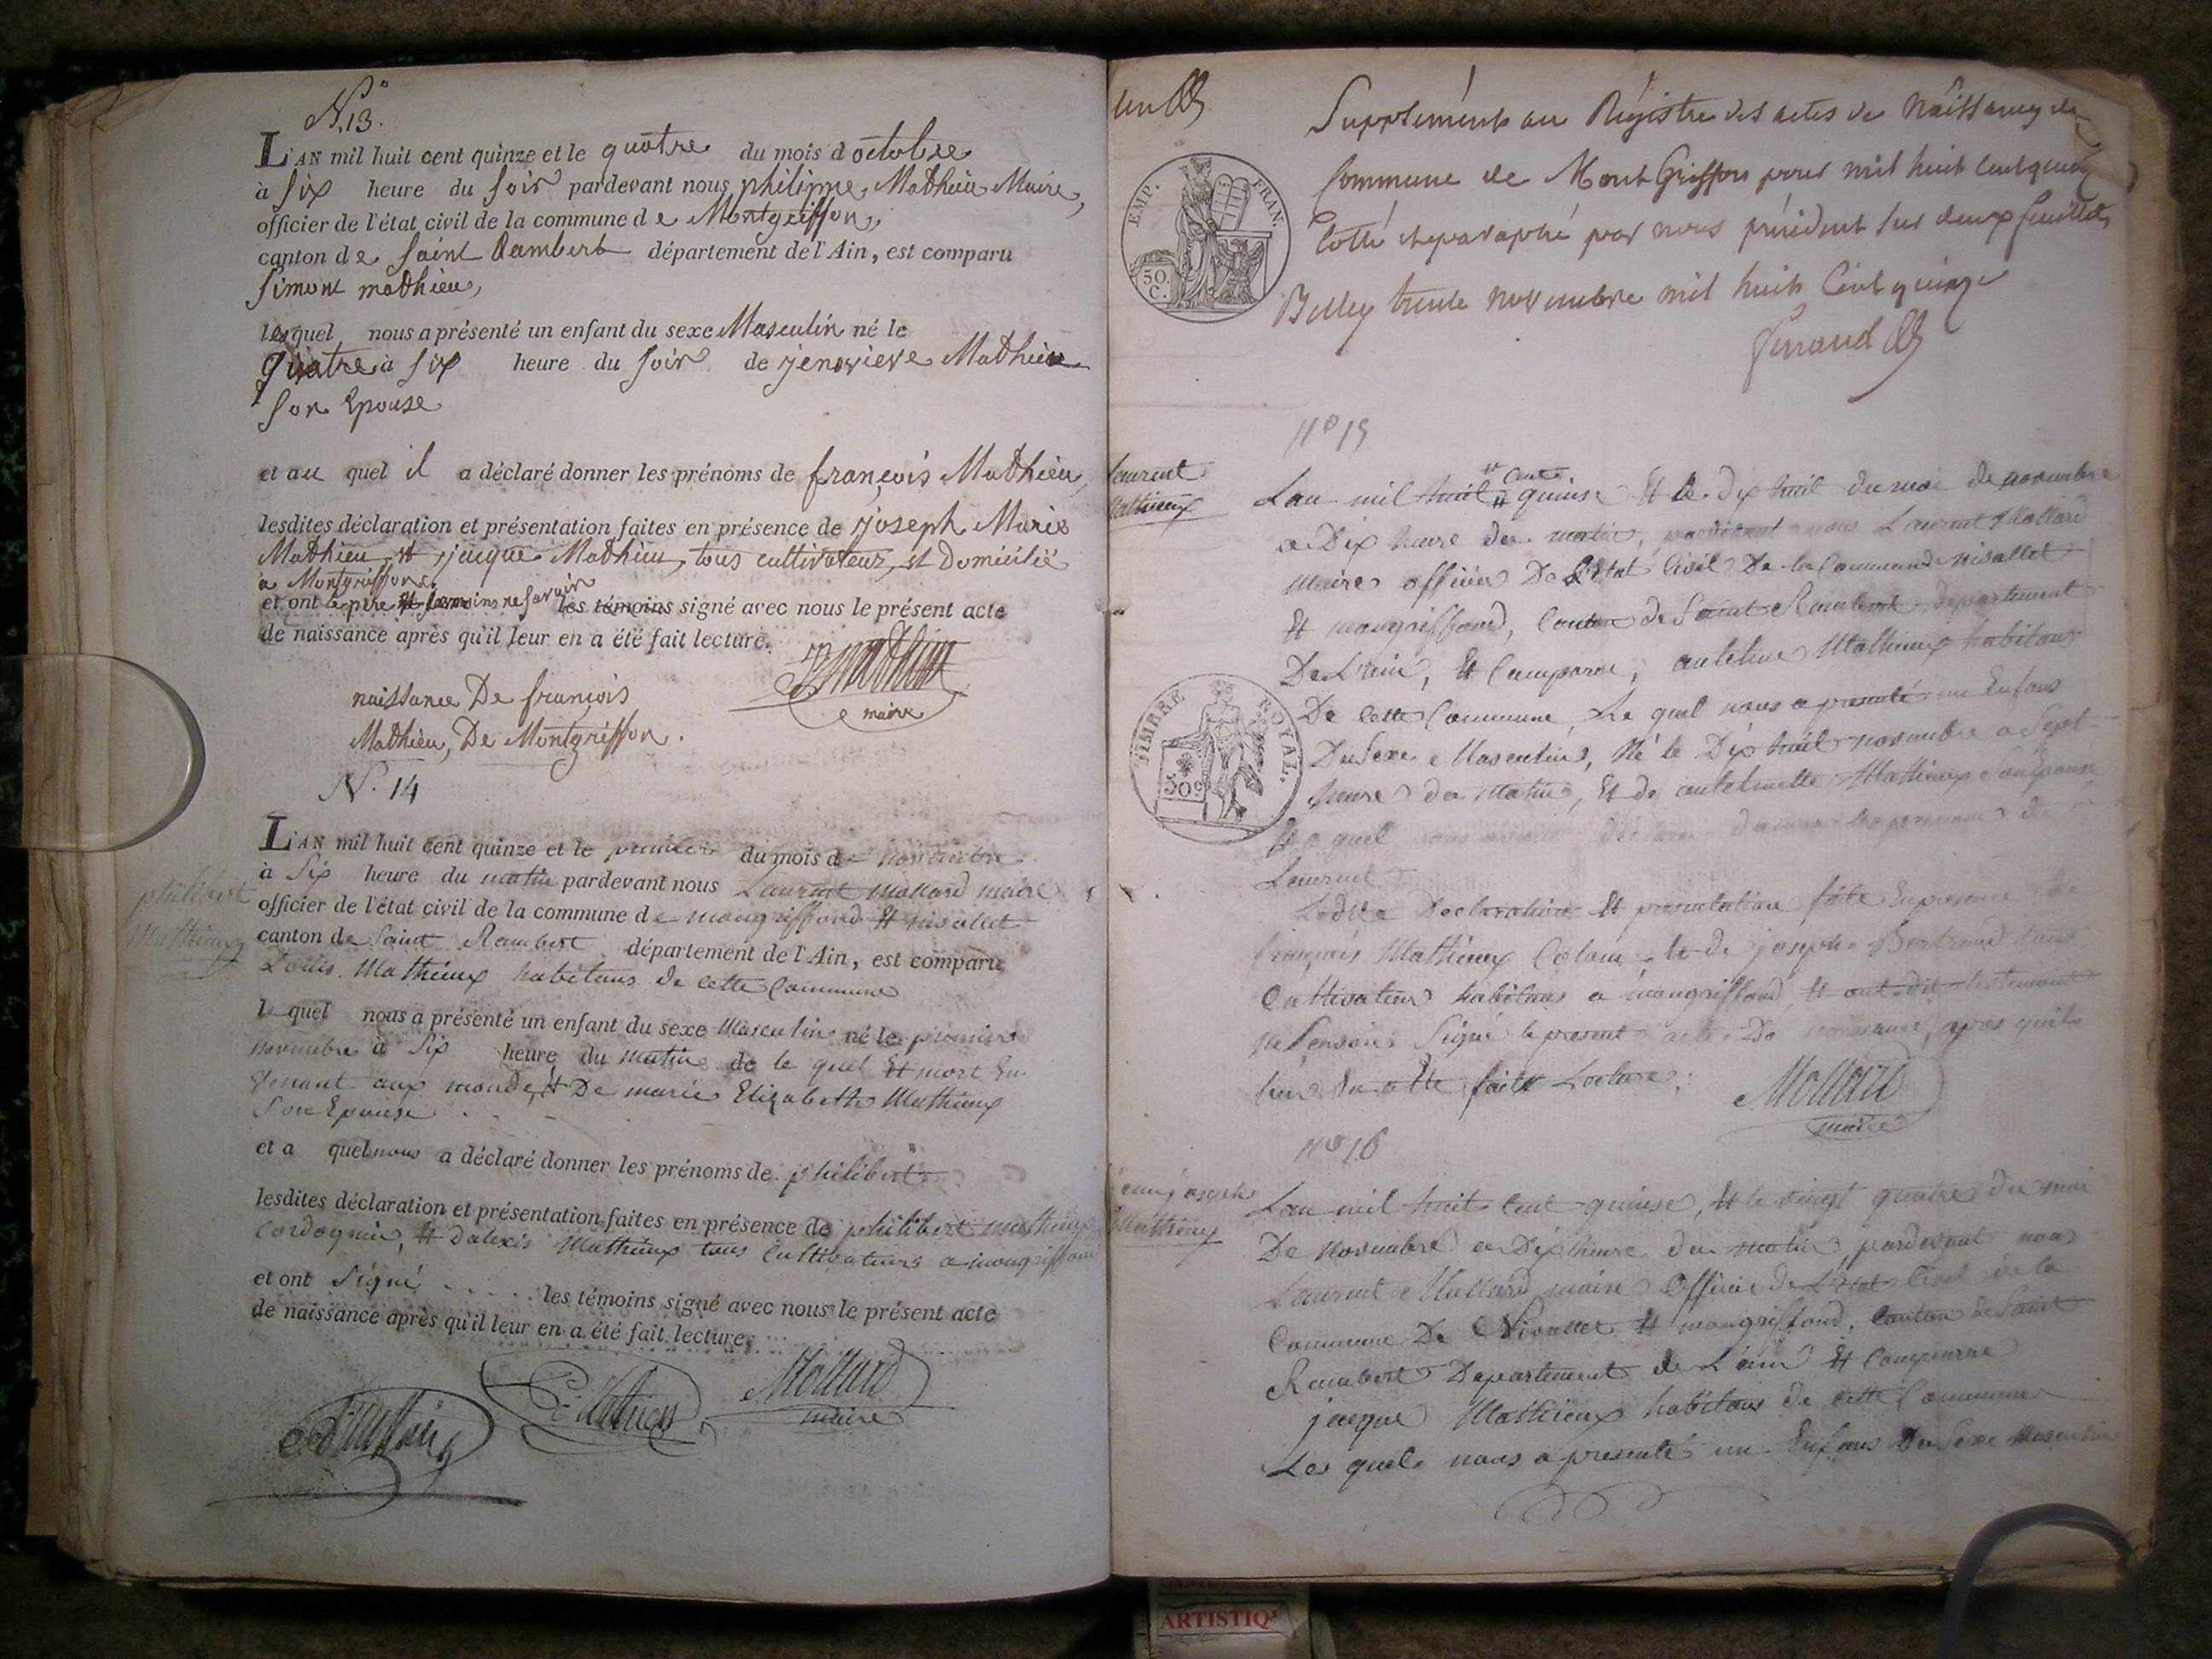 N.° 13.
L'AN mil huit cent quinze et le quatre du mois d octobre
à six heure du soir pardevant nous philippe Mathieu Maire,
officier de l'état civil de la commune de Montgriffon,
canton de saint Rambert département de l'Ain, est comparu
simont mathieu,
lesquel nous a présenté un enfant du sexe Masculin né le
quatre à six heure du soir de jenevieve Mathieu
son Epouse
et au quel il a déclaré donner les prénoms de françois Mathieu,
lesdites déclaration et présentation faites en présence de joseph Marie
Mathieu, et jacque Mathieu, tous cultivateur, et Domicilié
a Montgriffon
et ont le père et temoins ne savoir les témoins signé avec nous le présent acte
de naissance après qu'il leur en a été fait lecture.
maire
naissance De françois
Mathieu, De Montgriffon.
N. 14
L'AN mil huit cent quinze et le premier du mois de novembre
à Six heure du matin pardevant nous Laurent Mollard maire
officier de l'état civil de la commune de mongriffond et nivollet
philibert
Mathieux
canton de Saint Rambert département de l'Ain, est comparu
Louis Mathieux habitans de cette Commune
le quel nous a présenté un enfant du sexe Masculin né le premier
novembre à Six heure du matin de le quel Et mort En
venant aux monde, et De marie Elizabeth Mathieux
Son Epouse
et a quel nous a déclaré donner les prénoms de philibert
lesdites déclaration et présentation faites en présence de philibert mathieux
Cordognier, et d'alexis Mathieux tous Cultivateurs a mongriffond
et ont Signé les témoins signé avec nous le présent acte
de naissance après qu'il leur en a été fait lecture.
Mollard
maire
Supplément au Régistre des actes de Naissances de
Commune de Mont Griffon pour mil huit cent quinze
Cotté et paraphé par nous président sur deux feuillets
Belley trente novembre mil huit Cent quinze
EMP. FRAN.
50.
C.
n° 15
Laurent
Mathieux
Lan mil huit cent quinse Et le dix huit du moi de novembre
a Dix heure du matin, pardevant nous Laurent Mollard
maire officier De l'Etat Civil De la Commune de nivollet
Et mongriffond, Canton de Saint Rambert, departement
De L'ain, Et Comparu, antelme Mathieux habitans
De cette Commune, Le quel nous a presenté un Enfans
Du Sexe Masculine, Né le Dix huit novembre a Sept
heure du Matin, Et de antelmette Mathieux Son Epouse
TIMBRE ROYAL.
50c
Et a quel nous declare donner les prenoms de
Laurent
Ledite Declaration Et presentation faite En presence de
françois Mathieux Et de joseph Bertrand tous
Cultivateur habitans a mongriffond Et ont dit
ne Savoir Signé le present acte De naissance, apres quil
leur En a Ete faite Lecture.
Mollard
maire
n° 16
jean joseph
Mathieux
Lan mil huit Cent quinse, Et le vingt quatre du moi
De Novembre a Dix heure du matin, pardevant nous
Laurent Mollard maire Officier de l'Etat Civil de la
Commune De Nivollet Et mongriffond, Canton de Saint
Rambert Departement de L'ain Et Comparue
jacque Mathieux habitans de cette Commune
Le quel nous a presenté un Enfans Du Sexe Masculin
ARTISTIQ